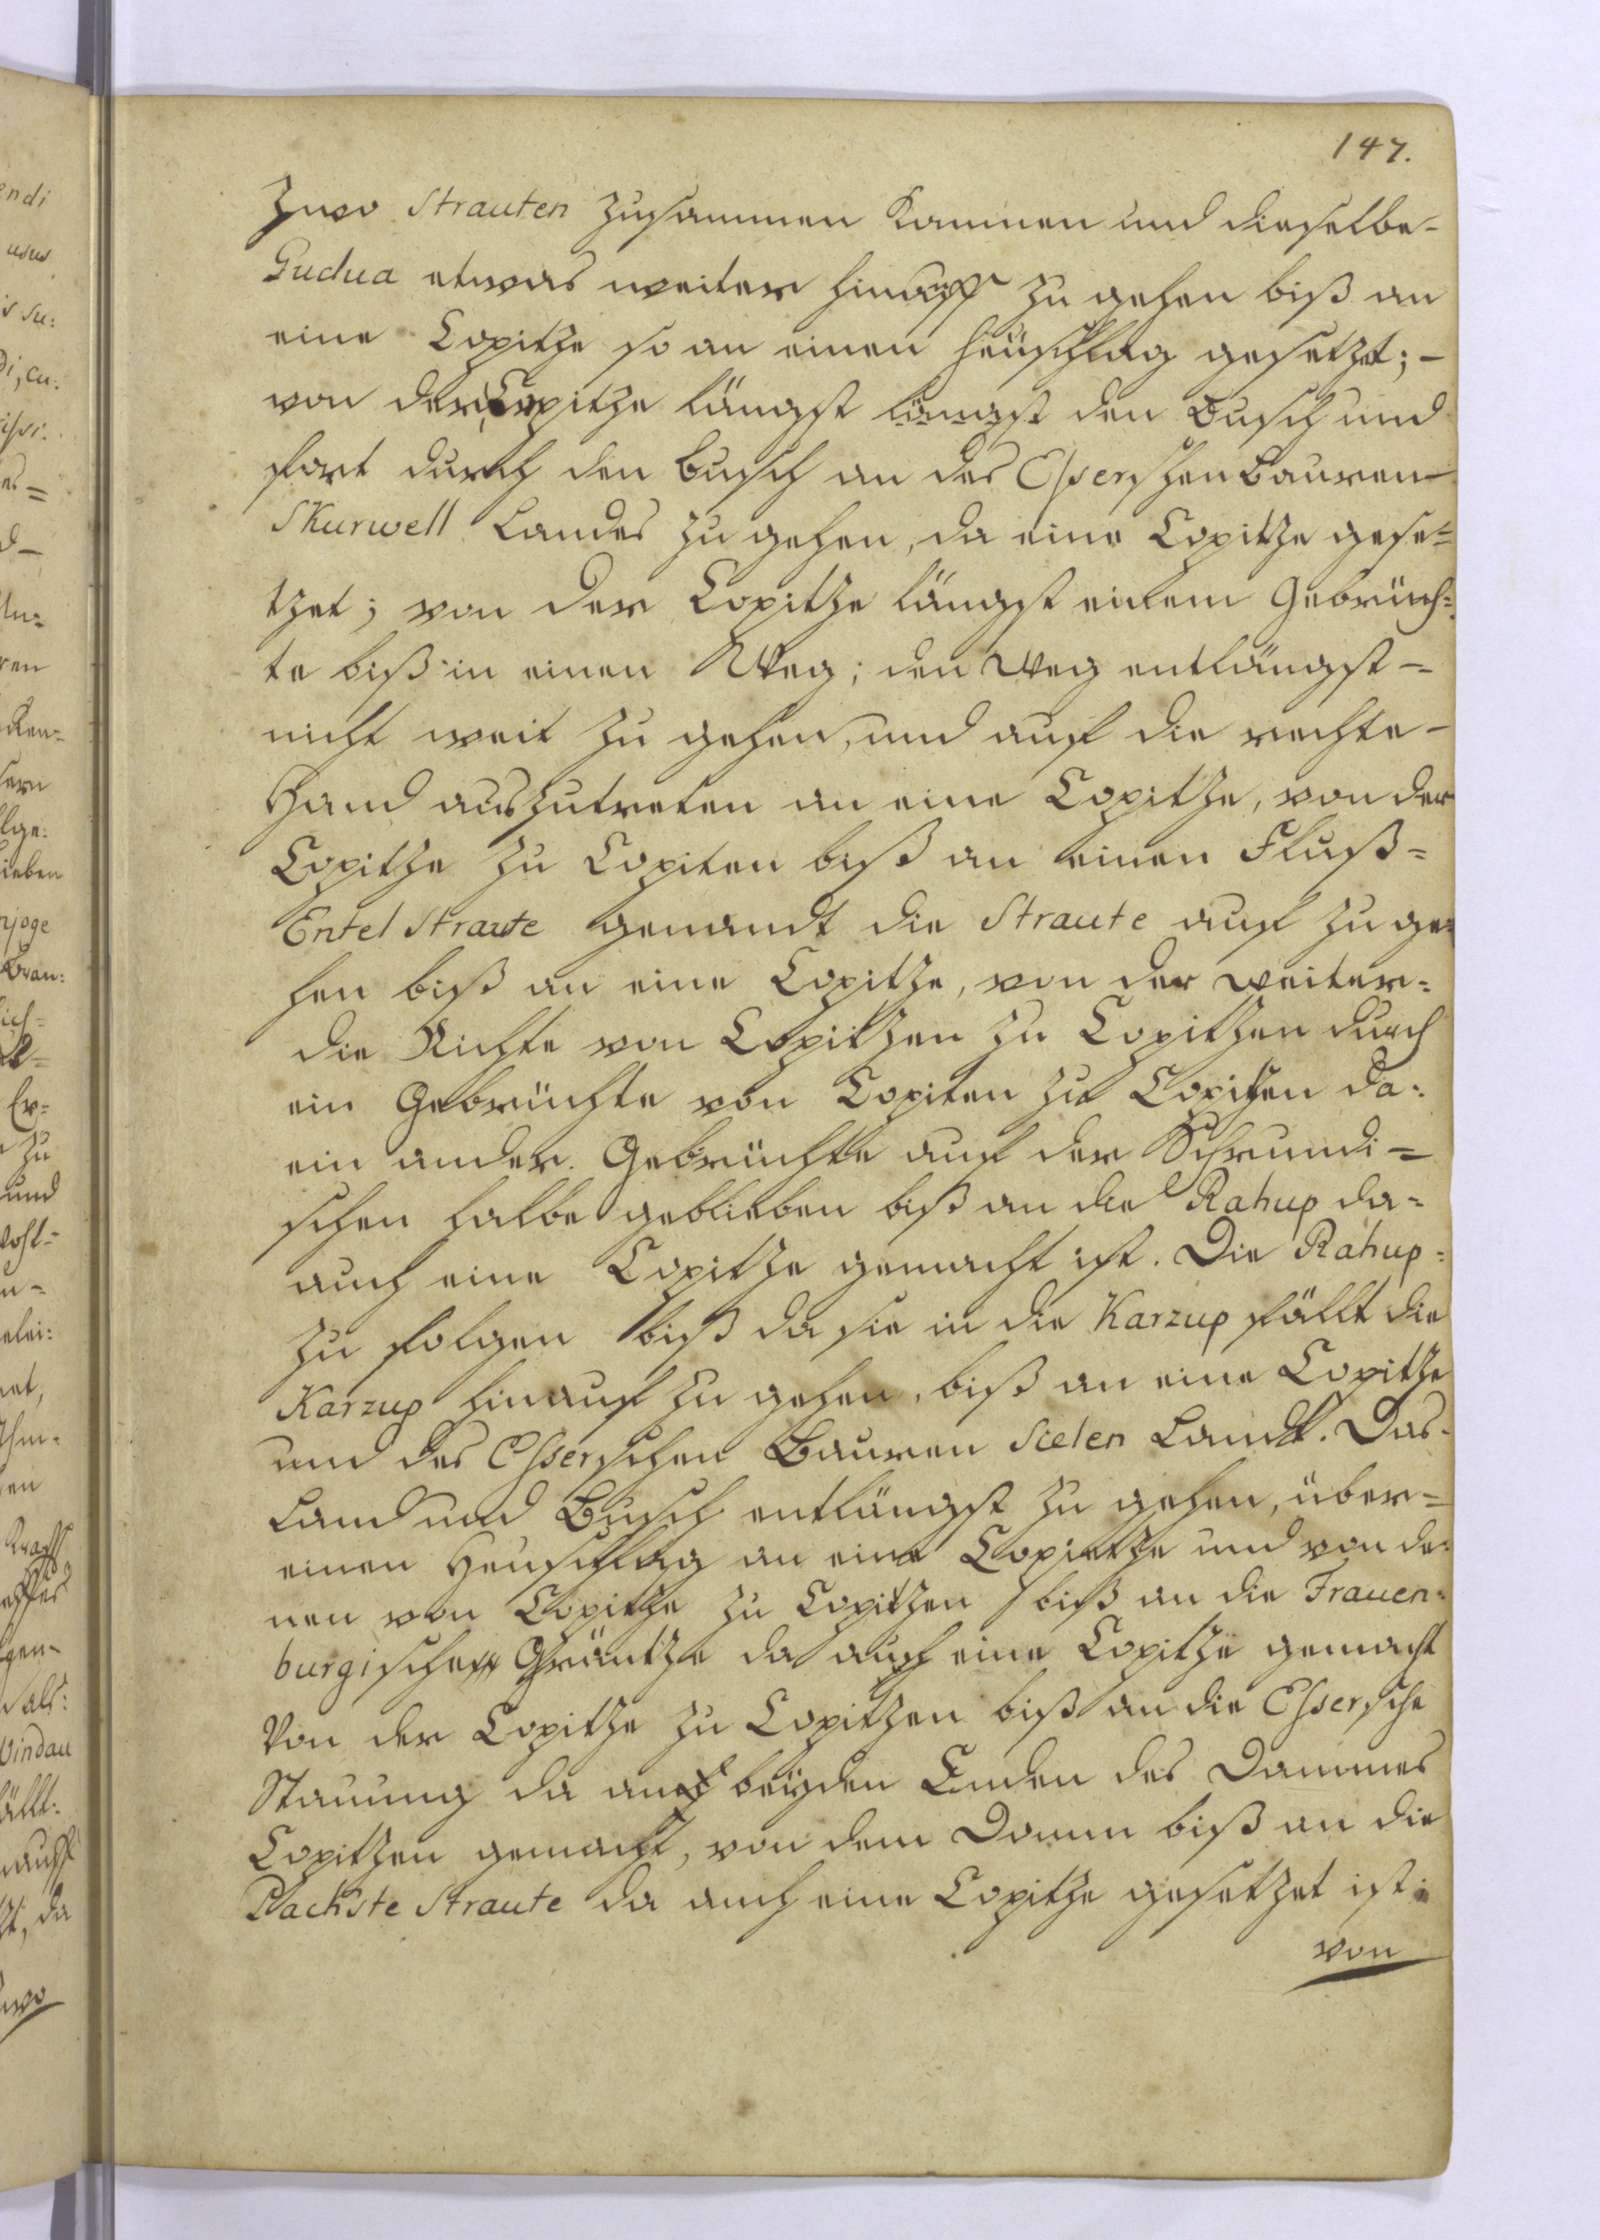 147.
Zwo Strauten zusammen kommen und dieselbe-
Gudua etwas weiter hinauff zu gehen biß an
eine Copitze so an einen Heüschlag gesetzet; -
von der Copitze längst längst den Busch und
fort durch den Busch an des Esserschen Bauren
Skurwell Landes zu gehen, da eine Copitze gese=
tzet; von der Copitze längst einem Gebrüch=
te biß in einen Weg; den Weg entlängst=
nicht weit zu gehen, und auf die rechte-
Hand auszutreten an eine Copitze, von der
Copitze zu Copiten biß an einen Fluß=
Entel Straute genandt die Straute auf zu ge=
hen biß an eine Copitze, von der weiter=
die Richte von Copitzen zu Copitzen durch
ein Gebrüchte von Copiten zu Copitzen da:
ein ander Gebrüchte auf der Schrundi=
schen halbe geblieben biß an die Rahup da=
auch eine Copitze gemacht ist. Die Rahup=
zu folgen biß da sie in die Karzup fällt die
Karzup hinauf zu gehen, biß an eine Copitze
und des Esserschen Bauren Sielen Landt. Das
Land und Busch entlängst zu gehen, über=
einen Heuschlag an eine Copietze und von de=
nen von Copitze zu Copitzen biß an die Frauen=
burgischen Gräntze da auch eine Copitze gemacht
Von der Copitze zu Copitzen biß an die Essersche
Stauung da auf beyden Enden des Dammes
Copitzen gemacht, von dem Damm biß an die
Plackste Straute da auch eine Copitze gesetzet ist;
von